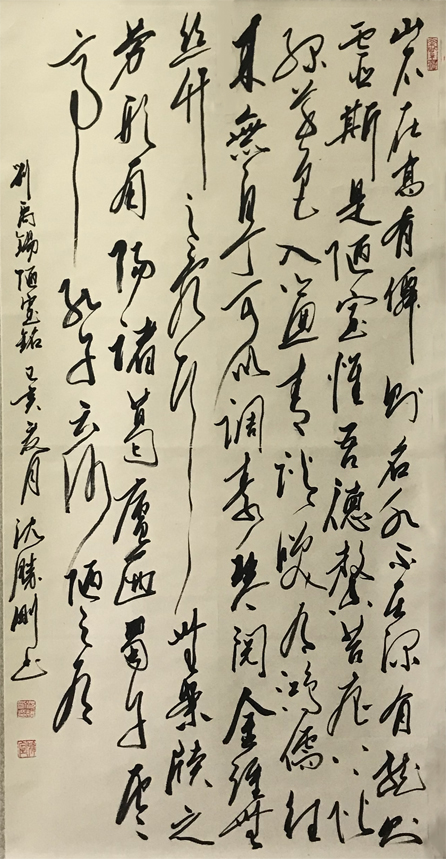 山不在高有僊則名水不在深有龍則
靈斯是陋室惟吾德馨苔痕上階
綠草色入簾青談笑有鴻儒往
來無白丁可以調素琴閱金經無
丝竹之亂耳無案牘之
劳形南陽諸葛廬西蜀子雲
亭孔子云何陋之有
劉禹錫陋室銘己亥夏月沈勝刚书